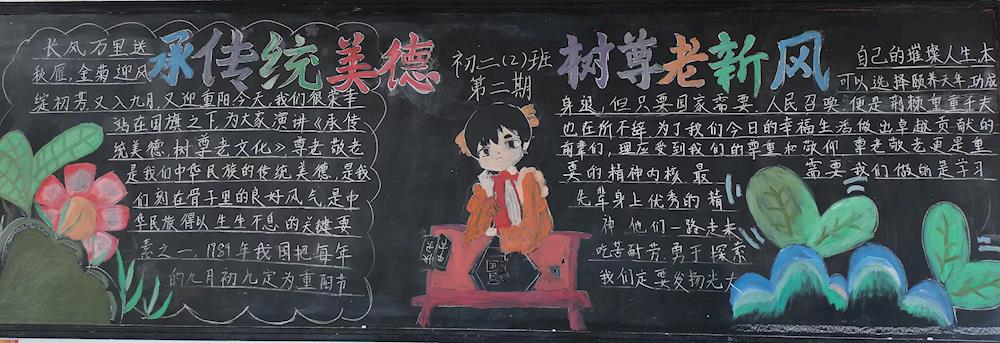 承传统美德
长风万里送
秋雁,金菊迎风
绽初芳又入九月,又迎重阳今天,我们很荣幸
站在国旗之下,为大家演讲《承传
统美德,树尊老文化》,尊老敬老
是我们中华民族的传统美德,是我
们刻在骨子里的良好风气是中
华民族得以生生不息的关键要
素之一,1989年我国把每年
的九月初九定为重阳节
初二(2)班
第二期
树尊老新风
自己的璀璨人生,本
可以选择颐养天年,功成
身退,但只要国家需要,人民召唤,便是荆棘重重千夫
也在所不辞,为了我们今日的幸福生活做出卓越贡献的
前辈们,理应受到我们的尊重和敬仰,尊老敬老更是重
要的精神内核,最需要我们做的是学习
先辈身上优秀的精
神他们一路走来
吃苦耐劳勇于探索
我们定要发扬光大